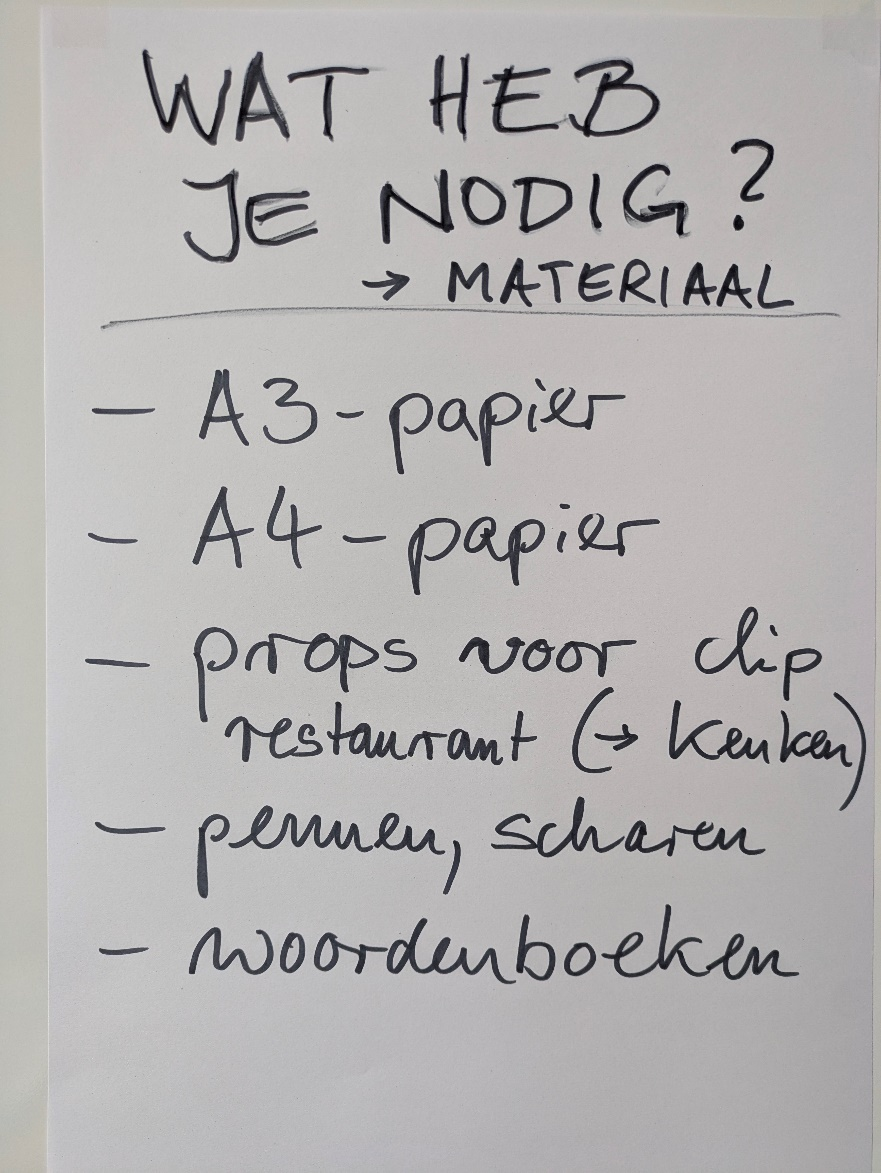 WAT HEB
JE NODIG?
→ MATERIAAL
— A3-papier
— A4-papier
— props voor clip
restaurant (→ keuken)
— pennen, scharen
— woordenboeken